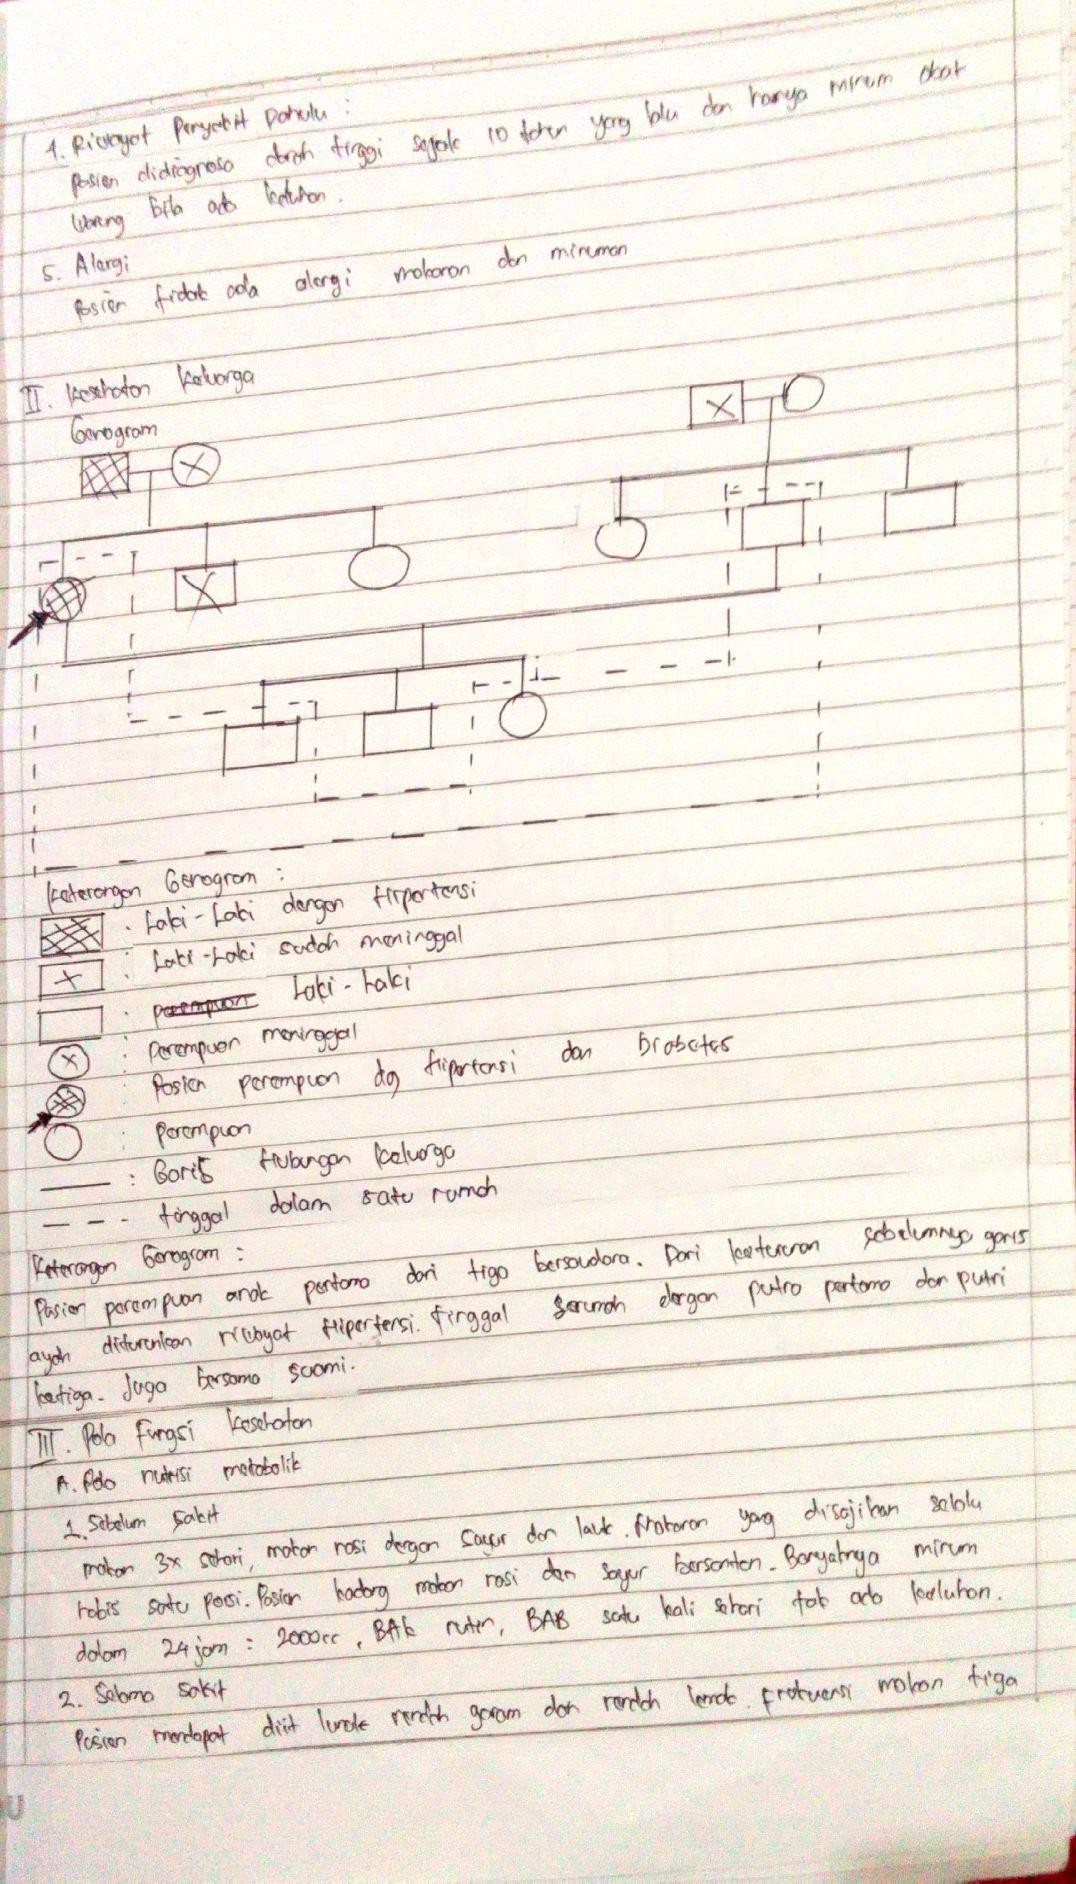 4. Riwayat Penyakit Dahulu :
Pasien didiagnosa darah tinggi sejak 10 tahun yang lalu dan hanya minum obat
warung bila ada keluhan.
5. Alergi
Pasien tidak ada alergi makanan dan minuman
II. Kesehatan Keluarga
Genogram
Keterangan Genogram :
: Laki-Laki dengan Hipertensi
: Laki-Laki sudah meninggal
: Laki-Laki
: Perempuan meninggal
: Pasien perempuan dg Hipertensi dan Diabetes
: Perempuan
: Garis Hubungan Keluarga
- tinggal dalam satu rumah
Keterangan Genogram :
Pasien perempuan anak pertama dari tiga bersaudara. Dari keturunan sebelumnya garis
ayah diturunkan riwayat Hipertensi. Tinggal serumah dengan putra pertama dan putri
ketiga. Juga bersama suami.
III. Pola Fungsi Kesehatan
A. Pola nutrisi metabolik
1. Sebelum Sakit
makan 3x sehari, makan nasi dengan sayur dan lauk. Makanan yang disajikan selalu
habis satu porsi. Pasien kadang makan nasi dan sayur bersantan. Banyaknya minum
dalam 24 jam : 2000cc, BAK rutin, BAB satu kali sehari tak ada keluhan.
2. Selama sakit
Pasien mendapat diit lunak rendah garam dan rendah lemak. Frekuensi makan tiga